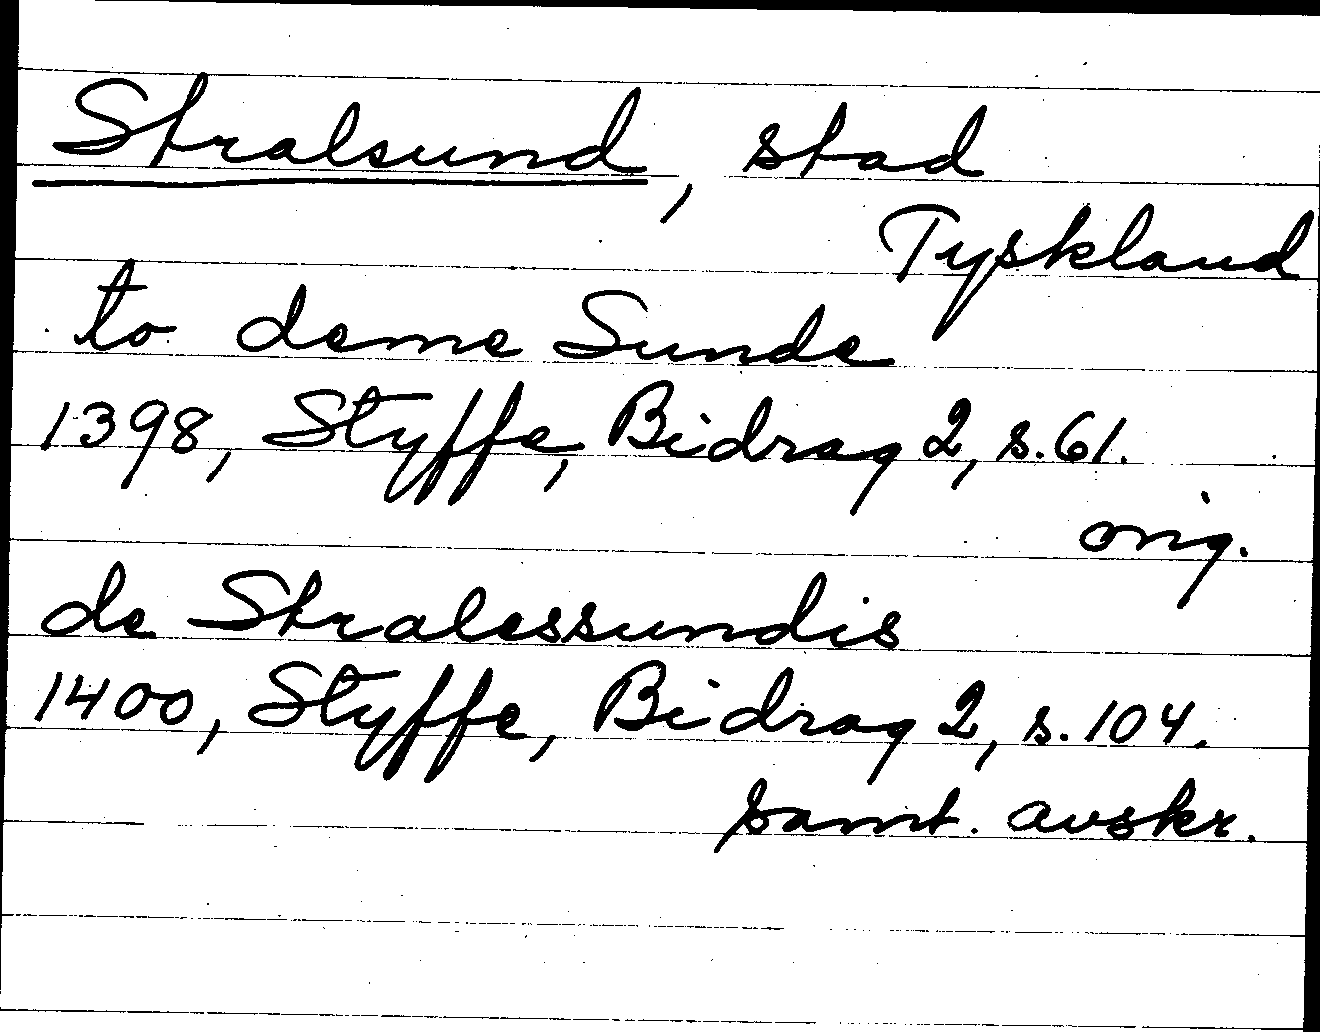 Stralsund, stad
Tyskland
to deme Sunde
1398, Styffe, Bidrag 2, s. 61.
orig.
de Stralessundis
1400, Styffe, Bidrag 2, s. 104.
samt. avskr.